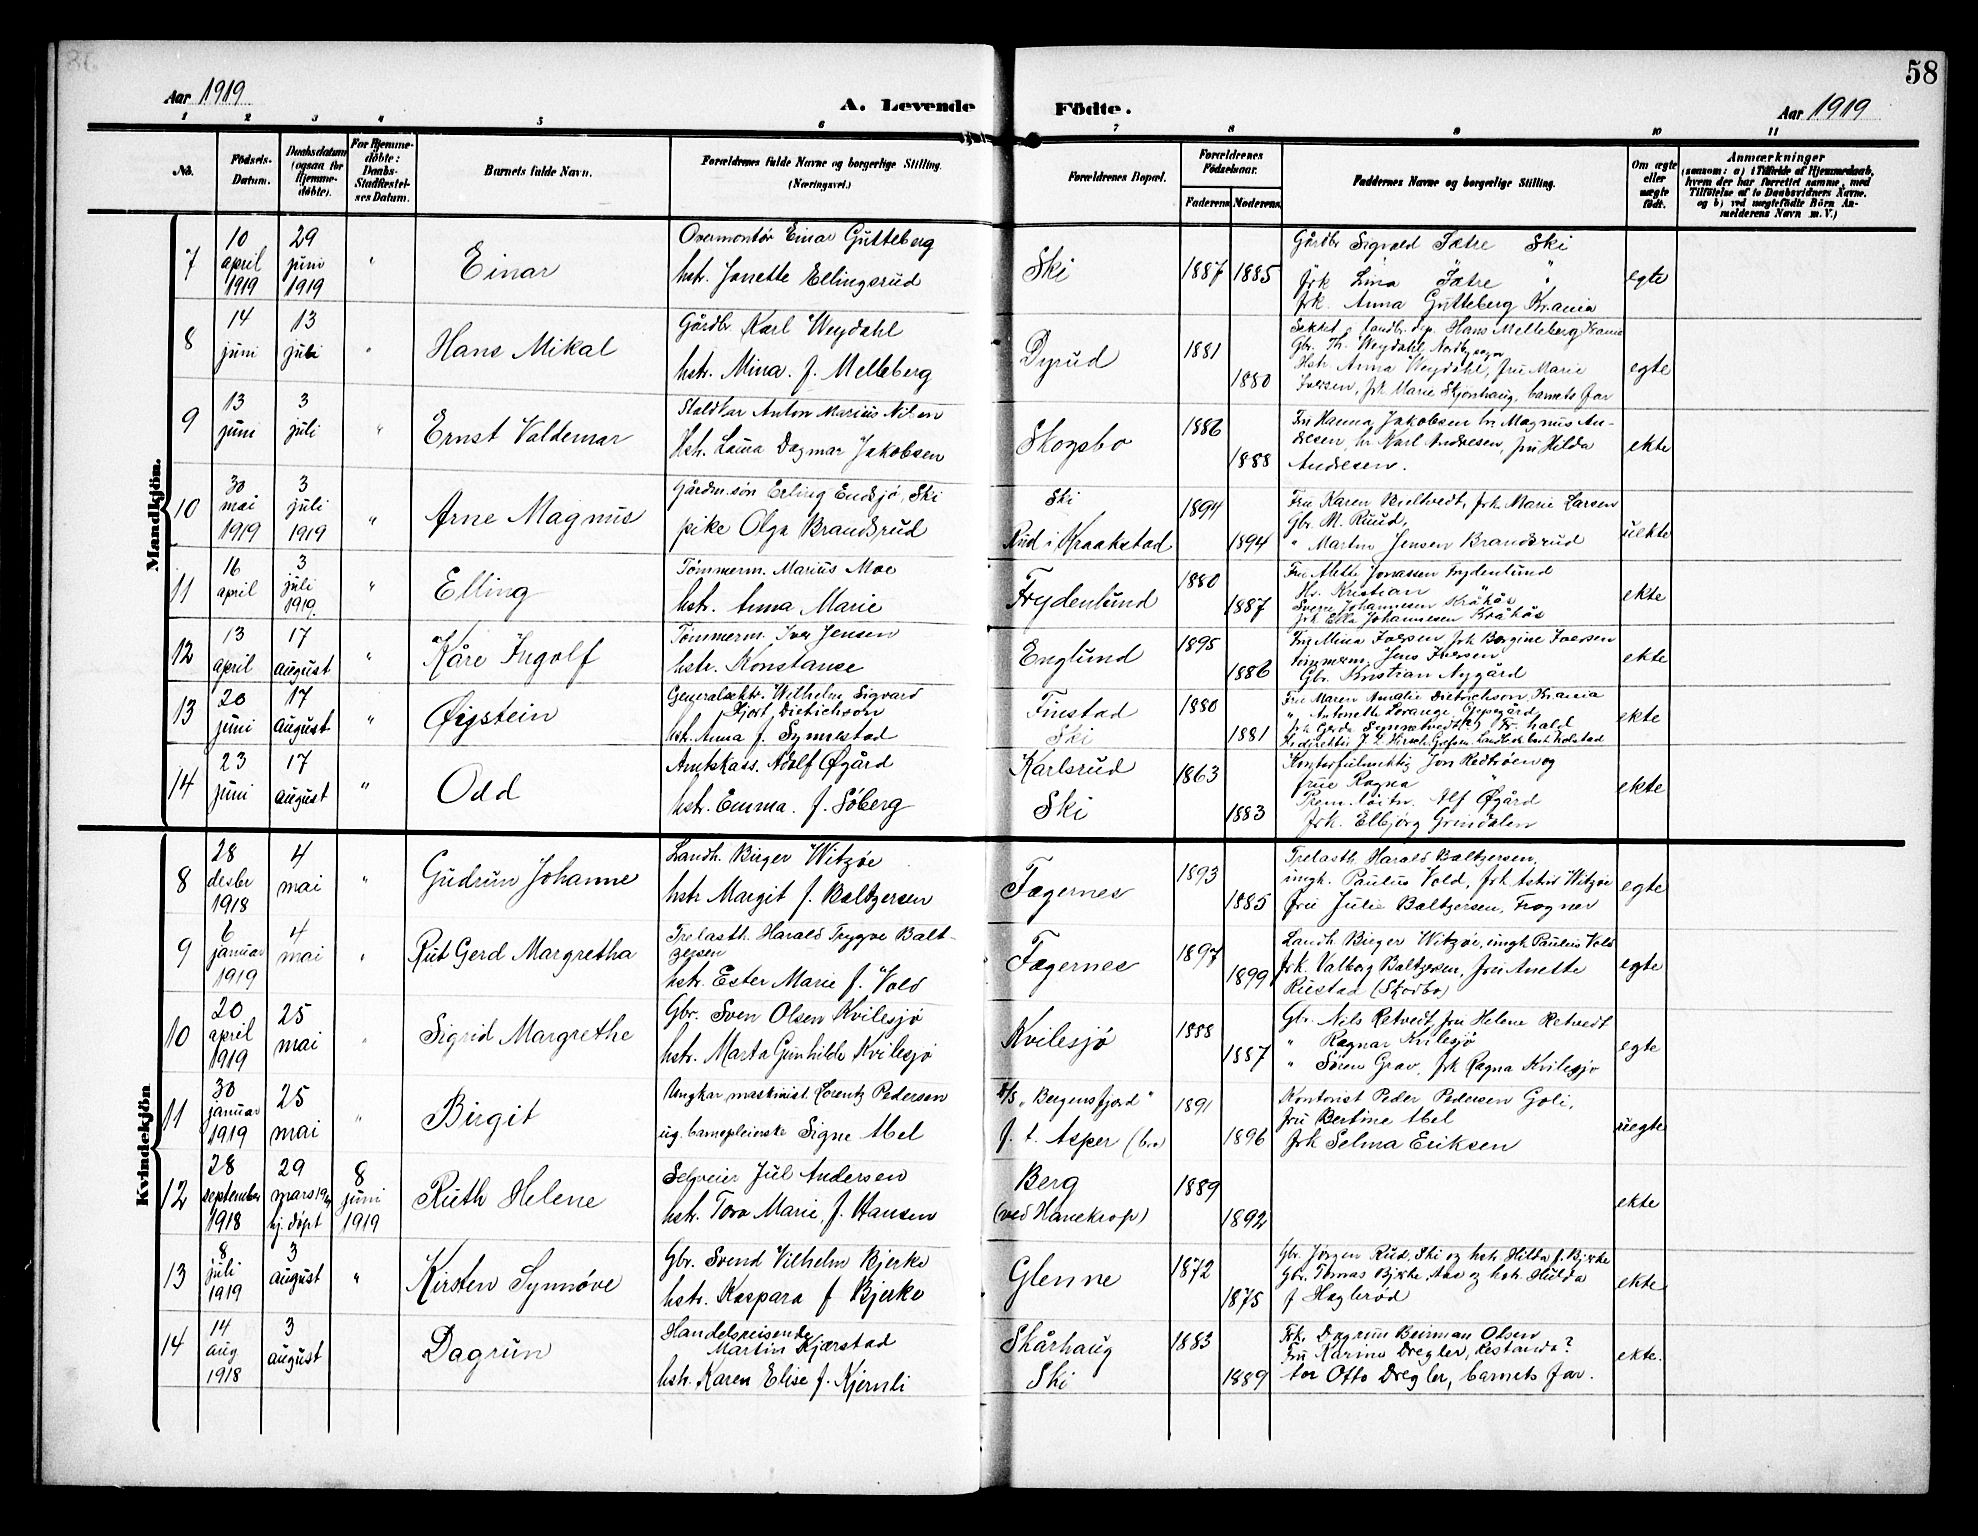 58
Aar 1919
A. Levende Födte.
Aar 1919
1 2 3 4 5 6 7 8 9 10 11
No.
Födsels-
Datum.
Daabsdatum
(ogsaa for
Hjemme-
döbte).
For Hjemme-
döbte:
Daabs-
Stadfæstel-
ses Datum.
Barnets fulde Navn.
Forældrenes fulde Navne og borgerlige Stilling.
(Næringsvei.)
Forældrenes Bopæl.
Forældrenes
Födselsaar.
Faderens Moderens
Faddernes Navne og borgerlige Stilling.
Om ægte
eller
uægte
födt.
Anmærkninger
(saasom: a) i Tilfælde af Hjemmedaab,
hvem der har forrettet samme, med
Tilföielse af to Daabsvidners Navne.
og b) ved uægtefödte Börn An-
melderens Navn m. V.)
Mandkjön.
7
10
april
1919
29
juni
1919
"
Einar
Overmontör Einar Gutteberg
hstr. Janette Ellingsrud
Ski
1887 1885
Gårdbr Sigvald Sætre Ski
frk Lina Sætre "
frk. Anna Gutteberg Krania
egte
8
14
juni
13
juli
"
Hans Mikal
Gårdbr Karl Weydahl
hstr. Mina. f. Melleberg
Dyrud
1881
1880
landbr.dep. Hans Melleberg Krania
Gbr. Th. Weydahl Nordby sogn
Hstr Anna Weydahl, fru Marie
Iversen, frk Marie Skjönhaug, barnets far
egte
9
13
juni
3
juli
"
Ernst Valdemar
Staldkar Anton Marius Nilsen
Hstr. Laura Dagmar Jakobsen
Skogsbo
1886
1888
Fru Hanna Jakobsen hr Magnus An-
dresen, hr Karl Andresen, fru Hilda
Andresen.
ekte
10
30
mai
1919
3
juli
1919
"
Arne Magnus
Gårdm.sön Erling Endsjö, Ski
pike Olga Brandsrud
Ski
Rud i Kraakstad
1894
1894
Fru Karen Bieltvedt, frk. Marie Larsen
Gbr. M. Ruud,
" Martin Jensen Brandsrud
uekte
11
16
april
3
juli
1919.
"
Elling
Tömmerm. Marius Moe
hstr. Anna Marie
Frydenlund
1880
1887
Fru Mette Jonassen Frydenlund
Hr. Kristian "
Svene Johannesen Kråkås
frk Ella Johannesen Kråkås
ekte
12
13
april
17
august
"
Kåre Ingolf
Tömmerm. Iver Jensen
hstr. Konstanse
Englund
1895
1886
Fru Mina Iversen, frk Borgine Iversen
tömmerm. Jens Iversen
Gbr. Kristian Nygård
ekte
13
20
juni
17
august
"
Øistein
Generalsekr. Wilhelm Sigvard
Hjort Dietrichson
hstr. Anna f. Symestad
Finstad
Ski
1880
1881
Fru Maren Amalie Dietrichson, Krania
" Antonette Lorange Oppegård
ekte
14
23
juni
17
august
"
Odd
Amtskass. Adolf Øgård
hstr. Emma. f. Söberg
Karlsrud
Ski
1863
1883
Kontorfulmektig Jon Rödtröen og
frue Ragna "
Prem.löitn. Alf Øgård
frk. Elbjörg Grindalen
ekte
Kvindekjön
8
28
desbr
1918
4
mai
"
Gudrun Johanne
Landh. Birger Witzöe
hstr Margit f. Baltzersen
Fagernes
1893
1885
Trelasth. Harald Baltzersen,
ungk. Paulus Vold, frk Astri Witzöe
Fru Julie Baltzersen, Frogner
egte
9
6
januar
1919
4
mai
"
Rut Gerd Margretha
Trelasth. Harald Trygve Balt-
zersen
hstr. Ester Marie f. Vold
Fagernes
1897
1899
Landh. Birger Witzöe, ungk Paulus Vold
frk. Valborg Baltzersen, fru Anette
Rustad (Skodbo)
egte
10
20
april
1919
25
mai
"
Sigrid Margrethe
Gbr. Sven Olsen Kvilesjö
hstr. Marta Gunhilde Kvilesjö
Kvilesjö
1888
1887
Gbr. Nils Retvedt, fru Helene Retvedt
" Ragnar Kvilesjö
" Sören Grav, frk Ragna Kvilesjö
egte
11
30
januar
1919
25
mai
"
Birgit
Ungkar maskinist Lorentz Pedersen
ug. barnepleierske Signe Abel
S/S „Bergensfjord"
f. t. Asper
1891
1896
Kontorist Peder Pedersen Goli,
fru Bertine Abel
frk Selma Eriksen
uegte
12
28
september
1918
29
mars 1919
hj.döpt
8
juni
1919
Ruth Helene
Selveier Jul Andersen
hstr. Tora Marie, f. Hansen
Berg
(ved Hanekrop)
1889
1892
ekte
13
8
juli
1919
3
august
"
Kirsten Synnöve
Gbr. Svend Vilhelm Bjerke
hstr. Kaspara f Bjerke
Glenne
1872
1875
Gbr. Jörgen Rud, Ski og hstr. Hilda f. Bjerke
Gbr. Tomas Bjerke, Aas og hstr. Hulda
f Haglerød
ekte
14
14
aug
1918
3
august
Dagrun
Handelsreisende
Martin Kjærstad
hstr. Karen Elise f. Kjernli
Skårhaug
Ski
1883
1889
Frk. Dagrun Beirman Olsen
Fru Karine Dregler, Restaura?
tør Otto Dregler, barnets far.
ekte.